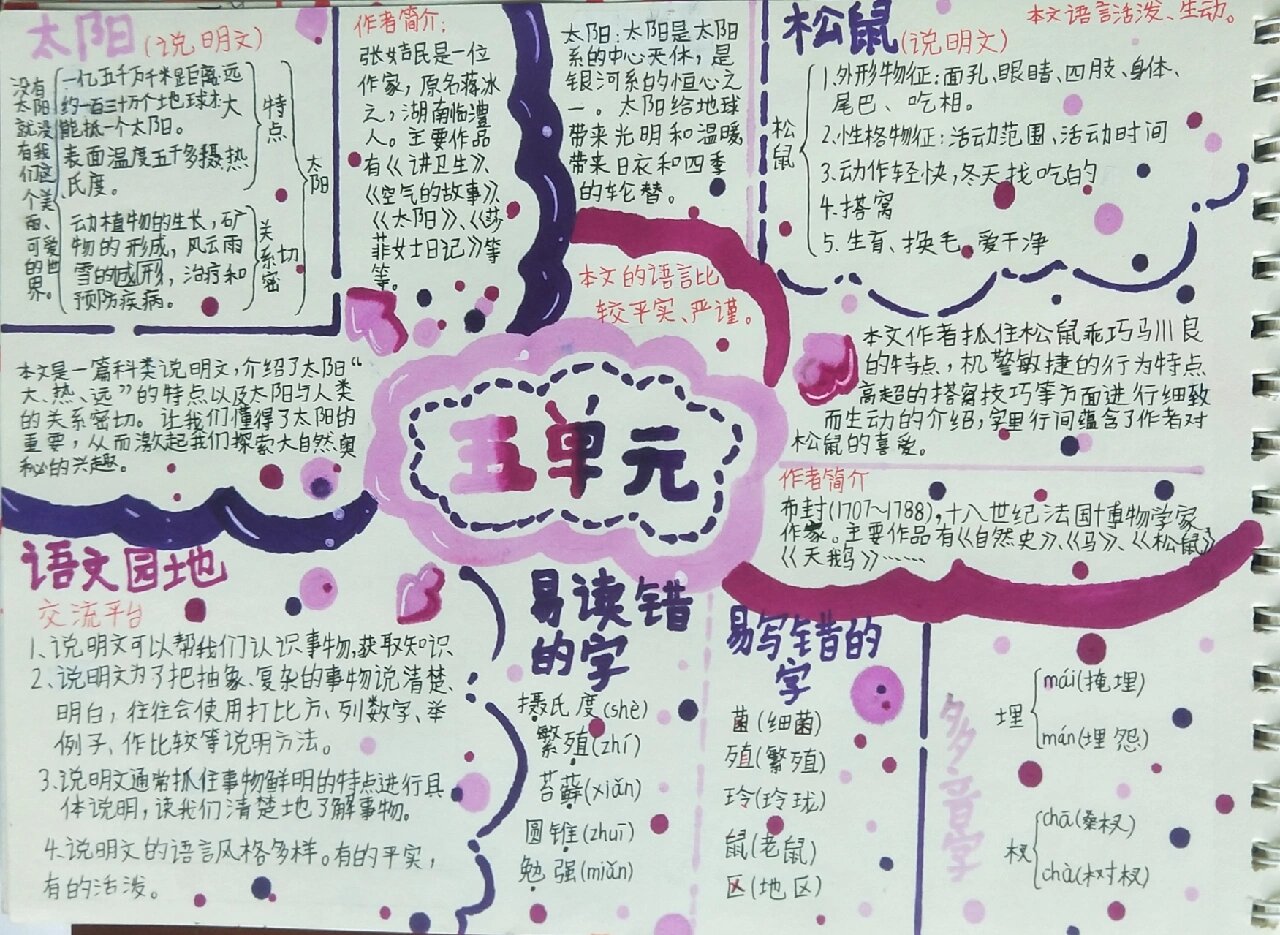 太阳(说明文)
没有太阳就没有我们这个美丽、可爱的世界。
一亿五千万千米距离远
约一百三十万个地球才大
能抵一个太阳。
表面温度五千多摄热
氏度。
特点
动植物的生长，矿
物的形成，风云雨
雪的形，治疗和
预防疾病。
关系密切
太阳
作者简介：
张姞民是一位
作家，原名蒋冰
之，湖南临澧
人。主要作品
有《讲卫生》、
《空气的故事》、
《太阳》、《莎
菲女士日记》等
等。
太阳：太阳是太阳
系的中心天体，是
银河系的恒心之
一。太阳给地球
带来光明和温暖，
带来日夜和四季
的轮替。
本文的语言比
较平实、严谨。
松鼠(说明文)
本文语言活泼、生动。
松鼠
1.外形物征：面孔、眼睛、四肢、身体、
尾巴、吃相。
2.性格物征：活动范围、活动时间
3.动作轻快，冬天找吃的
4.搭窝
5.生育、换毛、爱干净
本文作者抓住松鼠乖巧马川良
的特点，机警敏捷的行为特点
高超的搭窝技巧等方面进行细致
而生动的介绍，字里行间蕴含了作者对
松鼠的喜爱。
作者简介
布封(1707~1788)，十八世纪法国博物学家、
作家。主要作品有《自然史》、《马》、《松鼠》
《天鹅》……
本文是一篇科类说明文，介绍了太阳“
大、热、远”的特点以及太阳与人类
的关系密切。让我们懂得了太阳的
重要，从而激起我们探索大自然奥
秘的兴趣。
五单元
语文园地
交流平台
1、说明文可以帮我们认识事物，获取知识
2、说明文为了把抽象、复杂的事物说清楚、
明白，往往会使用打比方、列数字、举
例子、作比较等说明方法。
3.说明文通常抓住事物鲜明的特点进行具
体说明，读我们清楚地了解事物。
4.说明文的语言风格多样。有的平实，
有的活泼。
易读错
的字
摄氏度(shè)
繁殖(zhí)
苔藓(xiǎn)
圆锥(zhuī)
勉强(miǎn)
易写错的
字
菌(细菌)
殖(繁殖)
玲(玲珑)
鼠(老鼠)
区(地区)
多音字
埋
mái(掩埋)
mán(埋怨)
杈
chā(桑杈)
chà(树杈)